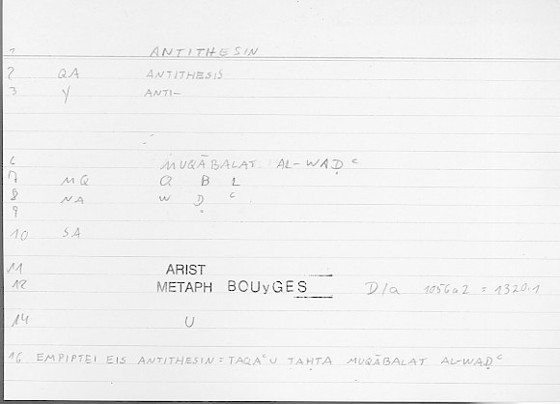 1 ANTITHESIN
2 QA ANTITHESIS
3 Y ANTI-
6 MUQĀBALAT AL-WAḌ ͨ
7 MQ Q B L
8 NA W Ḍ ͨ
9
10 SA
11 ARIST
12 METAPH BOUyGES D/a 1056a2 = 1320.1
14 U
16 EMPIPTEI EIS ANTITHESIN = TAQA ͨU TAḤTA MUQĀBALAT AL-WAḌ ͨ